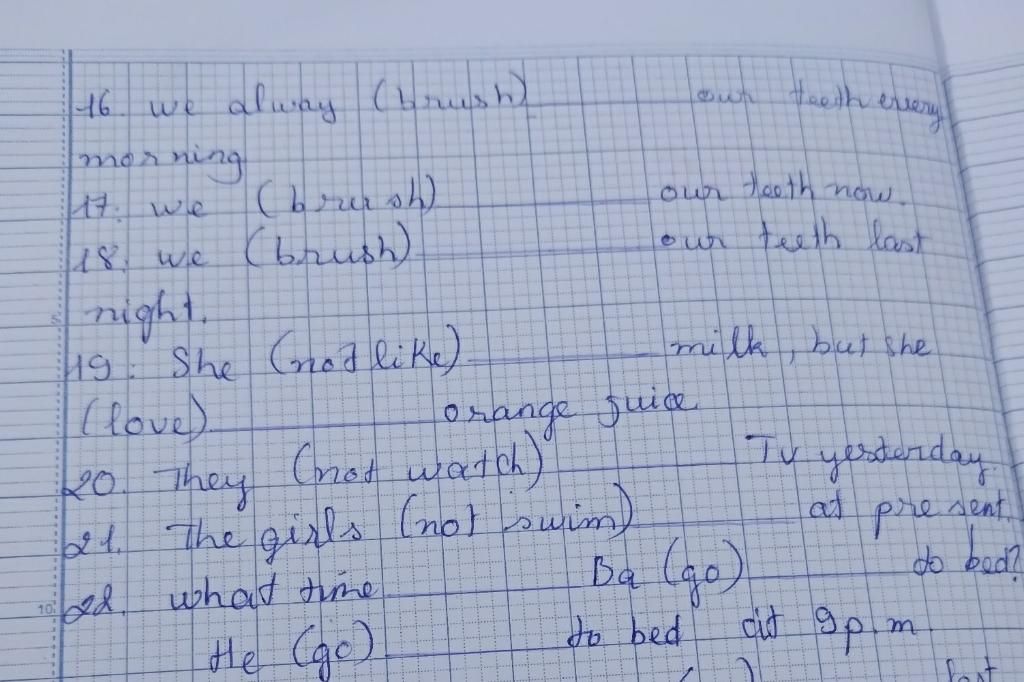 16. we alway (brush) our teeth every
morning
17. we (brush) our teeth now.
18. we (brush) our teeth last
night.
19. She (not like) milk, but she
(love) orange juice
20. They (not watch) TV yesterday.
21. The girls (not swim) at present.
22. what time Ba (go) to bed?
He (go) to bed at 9 p.m
last